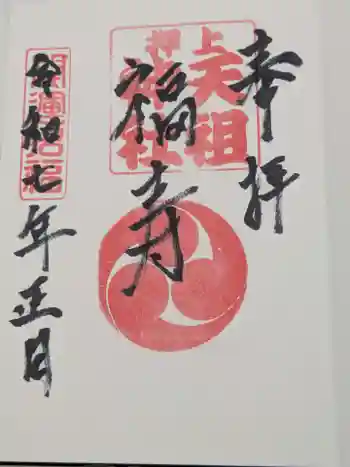 奉拝
押上
天祖
神社
福寿
開運招福
令和七年正月